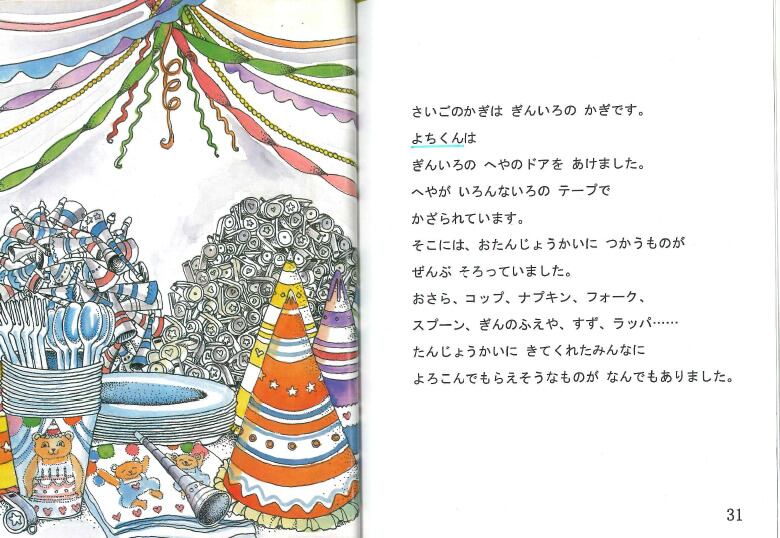 さいごのかぎは ぎんいろの かぎです。
よちくんは
ぎんいろの へやのドアを あけました。
へやが いろんないろの テープで
かざられています。
そこには、おたんじょうかいに つかうものが
ぜんぶ そろっていました。
おさら、コップ、ナプキン、フォーク、
スプーン、ぎんのふえや、すず、ラッパ……
たんじょうかいに きてくれたみんなに
よろこんでもらえそうなものが なんでもありました。
31